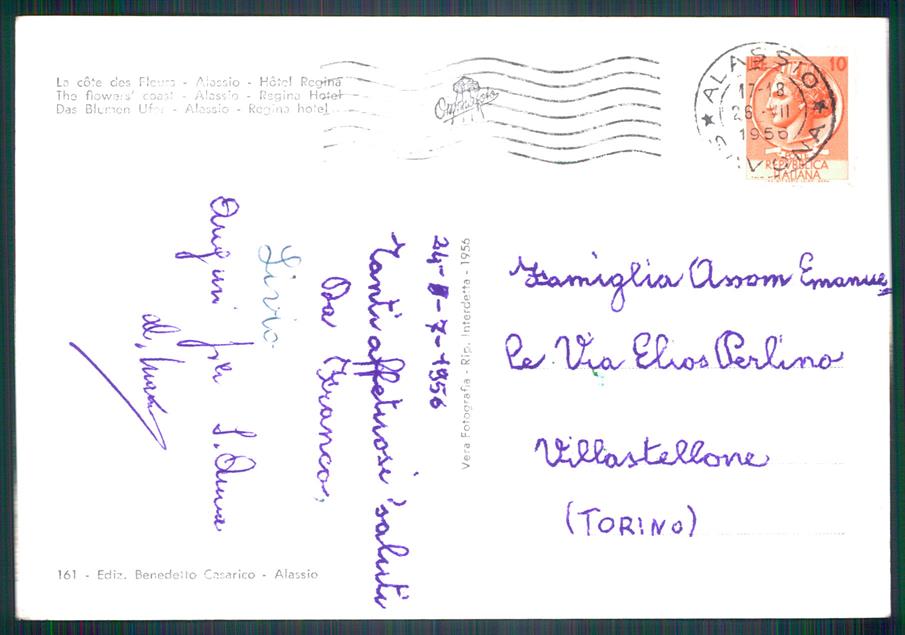 La côte des Fleurs - Alassio - Hôtel Regina
The flowers' coast - Alassio - Regina Hotel
Das Blumen Ufer - Alassio - Regina hotel
ALASSIO
17-18
26 - VII
1956
SAVONA
10
REPUBBLICA
ITALIANA
24-7-1956
Tanti affettuosi saluti
Da Franco,
Livio
Auguri per S. Anna
Vera Fotografia - Rip. Interdetta - 1956
Famiglia Assom Emanue
le Via Elios Perlino
Villastellone
(TORINO)
161 - Ediz. Benedetto Casarico - Alassio